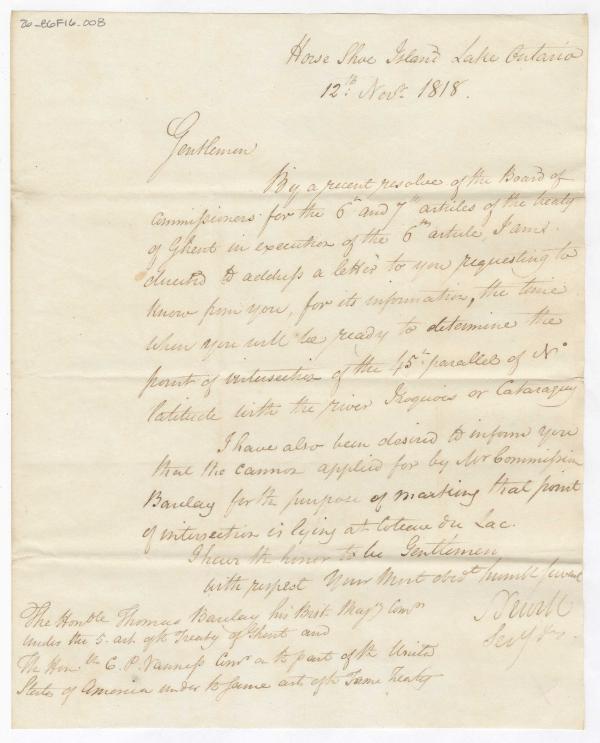 26-86F16-008
Horse Shoe Island Lake Ontario
12th Novr 1818.
Gentlemen
By a recent resolve of the Board of
Commissioners for the 6th and 7th articles of the treaty
of Ghent in execution of the 6th article, I am
directed to address a letter to you requesting to
know from you, for its information, the time
when you will be ready to determine the
point of intersection of the 45th parallel of No
latitude with the river Iroquois or Cataraguy
I have also been desired to inform you
that the cannon applied for by Mr Commissior
Barclay for the purpose of marking that point
of intersection is lying at Coteau du Lac.
I have the honor to be Gentlemen
with respect Your Most obedt humble servant
The Honble Thomas Barclay his Brit. Majy Comr
under the 5. art. of the Treaty of Ghent and
The Hon. the C. P. Vanness Comr on the part of the United
States of America under the same art of the same Treaty